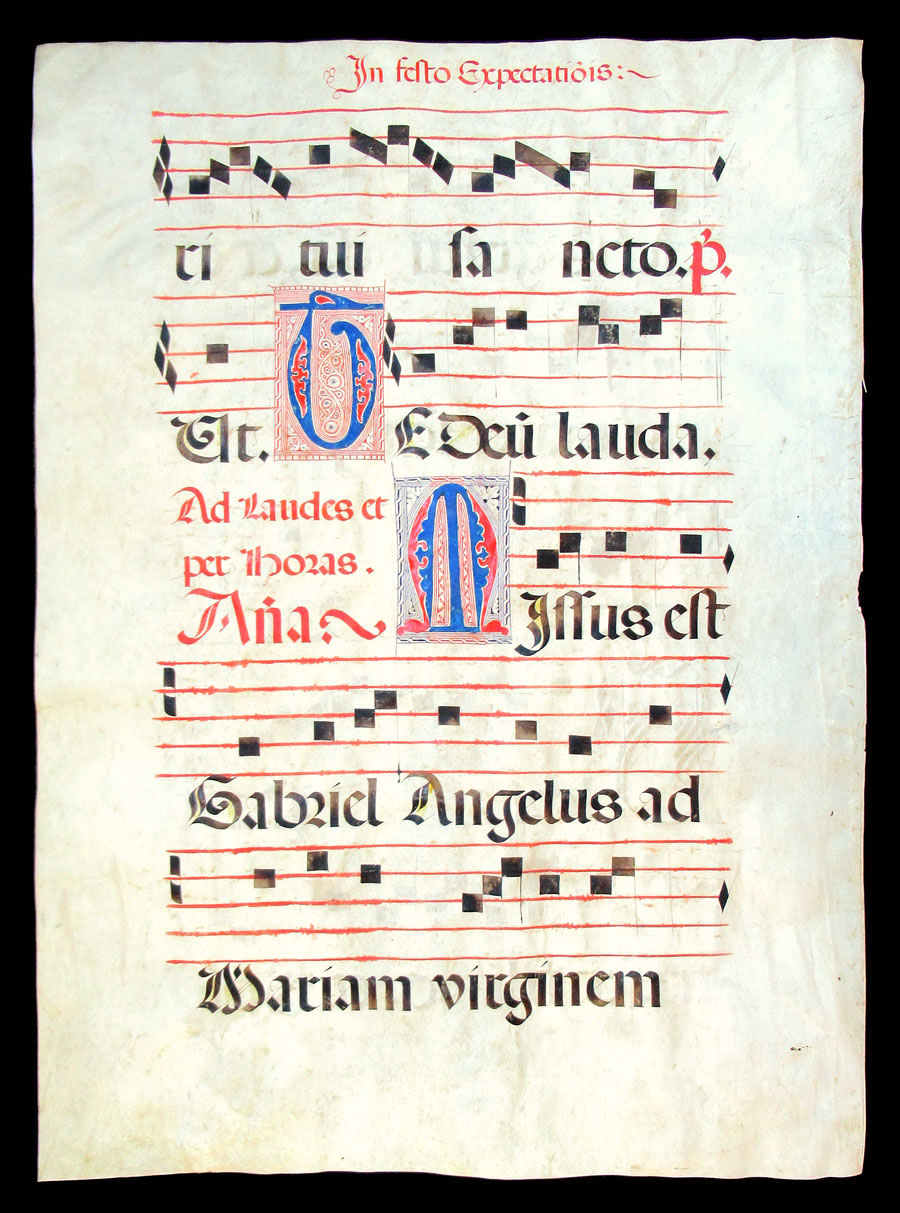 In festo Expectatiõis:~
ri tui sa ncto. p̃.
Ut. TE Deũ lauda.
Ad Laudes et
per Horas.
Aña:~ MIssus est
Gabriel Angelus ad
Mariam virginem